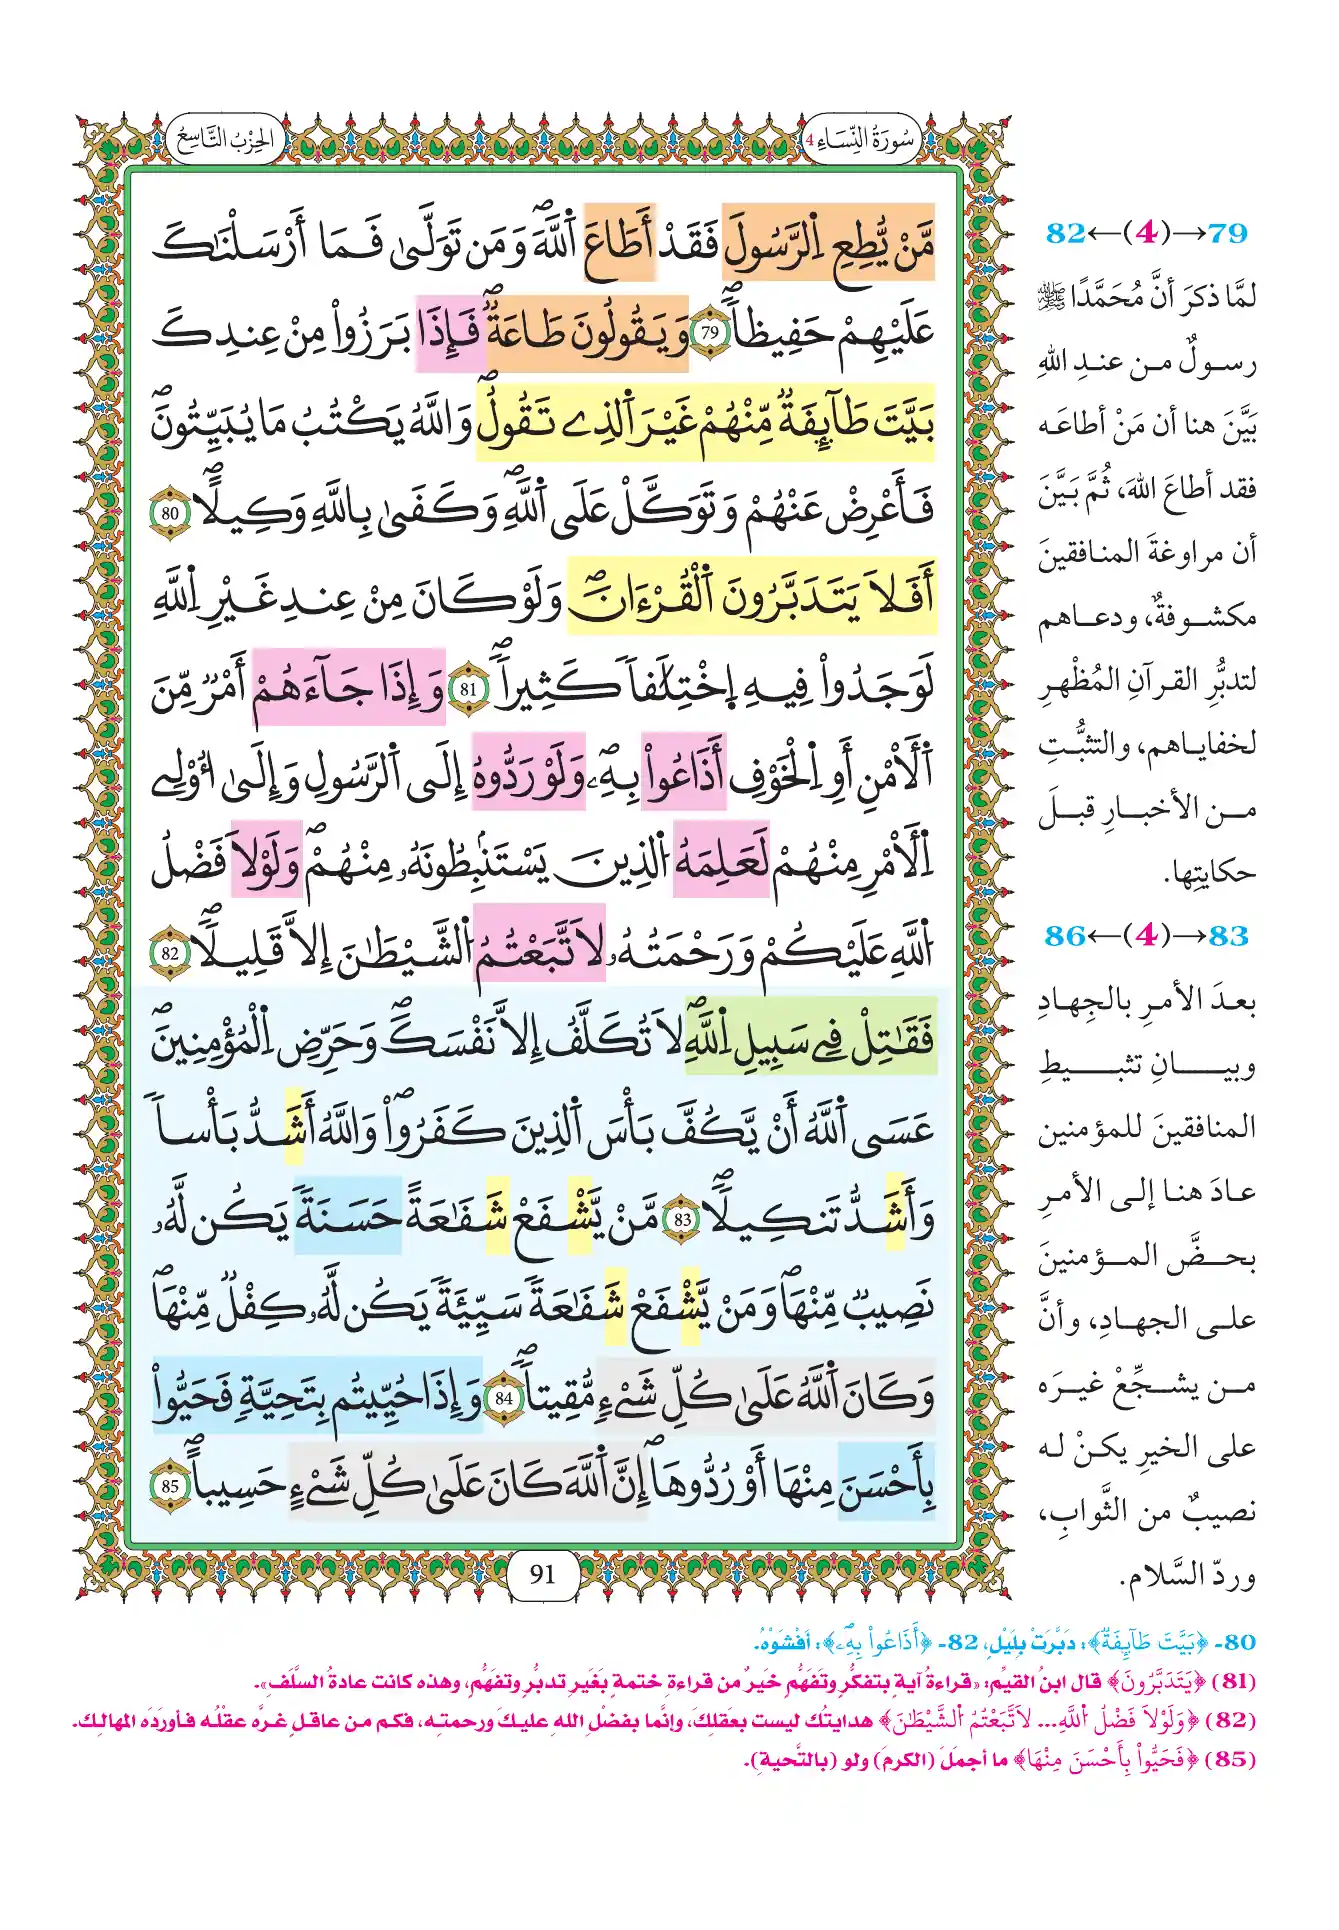 سُورَةُ النِّسَاءِ 4
الحِزْبُ التَّاسِعُ
مَّنْ يُّطِعِ اِ۬لرَّسُولَ فَقَدْ أَطَاعَ اَ۬للَّهَۖ وَمَن تَوَلَّىٰ فَمَا أَرْسَلْنَٰكَ
عَلَيْهِمْ حَفِيظاٗۖ 79 وَيَقُولُونَ طَاعَةٞۖ فَإِذَا بَرَزُواْ مِنْ عِندِكَ
بَيَّتَ طَآئِفَةٞ مِّنْهُمْ غَيْرَ اَ۬لذِے تَقُولُۖ وَاللَّهُ يَكْتُبُ مَا يُبَيِّتُونَۖ
فَأَعْرِضْ عَنْهُمْ وَتَوَكَّلْ عَلَى اَ۬للَّهِۖ وَكَفَىٰ بِاللَّهِ وَكِيلاًۖ 80
أَفَلَا يَتَدَبَّرُونَ اَ۬لْقُرْءَانَۖ وَلَوْ كَانَ مِنْ عِندِ غَيْرِ اِ۬للَّهِ
لَوَجَدُواْ فِيهِ اِ۪خْتِلَٰفاٗ كَثِيراٗۖ 81 وَإِذَا جَآءَهُمْ أَمْرٞ مِّنَ
اَ۬لَامْنِ أَوِ اِ۬لْخَوْفِ أَذَاعُواْ بِهِۦۖ وَلَوْ رَدُّوهُ إِلَى اَ۬لرَّسُولِ وَإِلَىٰ أُوْلِے
اِ۬لَامْرِ مِنْهُمْ لَعَلِمَهُ اُ۬لذِينَ يَسْتَنۢبِطُونَهُۥ مِنْهُمْۖ وَلَوْلَا فَضْلُ
اُ۬للَّهِ عَلَيْكُمْ وَرَحْمَتُهُۥ لَاتَّبَعْتُمُ اُ۬لشَّيْطَٰنَ إِلَّا قَلِيلاٗۖ 82
فَقَٰتِلْ فِے سَبِيلِ اِ۬للَّهِۖ لَا تُكَلَّفُ إِلَّا نَفْسَكَۖ وَحَرِّضِ اِ۬لْمُؤْمِنِينَۖ
عَسَى اَ۬للَّهُ أَنْ يَّكُفَّ بَأْسَ اَ۬لذِينَ كَفَرُواْۖ وَاللَّهُ أَشَدُّ بَأْساٗ
وَأَشَدُّ تَنكِيلاٗۖ 83 مَّنْ يَّشْفَعْ شَفَٰعَةً حَسَنَةٗ يَكُن لَّهُۥ
نَصِيبٞ مِّنْهَاۖ وَمَنْ يَّشْفَعْ شَفَٰعَةٗ سَيِّئَةٗ يَكُن لَّهُۥ كِفْلٞ مِّنْهَاۖ
وَكَانَ اَ۬للَّهُ عَلَىٰ كُلِّ شَےْءٖ مُّقِيتاٗۖ 84 وَإِذَا حُيِّيتُم بِتَحِيَّةٖ فَحَيُّواْ
بِأَحْسَنَ مِنْهَا أَوْ رُدُّوهَاۖ إِنَّ اَ۬للَّهَ كَانَ عَلَىٰ كُلِّ شَےْءٍ حَسِيباٗۖ 85
91
79→(4)←82
لمَّا ذكرَ أنَّ مُحَمَّدًا ﷺ
رسـولٌ مـن عنـدِ اللهِ
بَيَّنَ هنا أن مَنْ أطاعَـه
فقد أطاعَ اللهَ، ثُمَّ بَـيَّنَ
أن مراوغةَ المنـافقينَ
مكشـوفةٌ، ودعـاهم
لتدبُّرِ القرآنِ المُظْهِرِ
لخفايـاهم، والتثبُّـتِ
مـن الأخبـارِ قبـلَ
حكايتِها.
83→(4)←86
بعـدَ الأمـرِ بالجِهـادِ
وبيـــانِ تثبـــيطِ
المنافقينَ للمؤمنين
عـادَ هنـا إلى الأمـرِ
بحـضِّ المـؤمنينَ
علـى الجهـادِ، وأنَّ
مـن يشـجِّعْ غيـرَه
على الخيرِ يكنْ لـه
نصيبٌ من الثَّوابِ،
وردّ السَّلام.
80- ﴿بَيَّتَ طَآئِفَةٞ﴾: دَبَّرَتْ بِلَيْلٍ، 82- ﴿أَذَاعُواْ بِهِۦۖ﴾: أفْشَوْهُ.
(81) ﴿يَتَدَبَّرُونَ﴾ قال ابنُ القيِّمِ: «قراءةُ آيةٍ بتفكُّرٍ وتَفَهُّمٍ خَيرٌ من قراءةِ ختمةٍ بغَيرِ تدبُّرٍ وتفهُّمٍ، وهذه كانت عادةُ السَّلَفِ».
(82) ﴿وَلَوْلَا فَضْلُ اُ۬للَّهِ... لَاتَّبَعْتُمُ اُ۬لشَّيْطَٰنَ﴾ هدايتُك ليست بعَقلِكَ، وإنَّما بفضْلِ اللهِ عليكَ ورحمتِه، فكم من عاقلٍ غرَّه عقلُه فأورَدَه المهالِكَ.
(85) ﴿فَحَيُّواْ بِأَحْسَنَ مِنْهَا﴾ ما أجملَ (الكرمَ) ولو (بالتَّحيةِ).